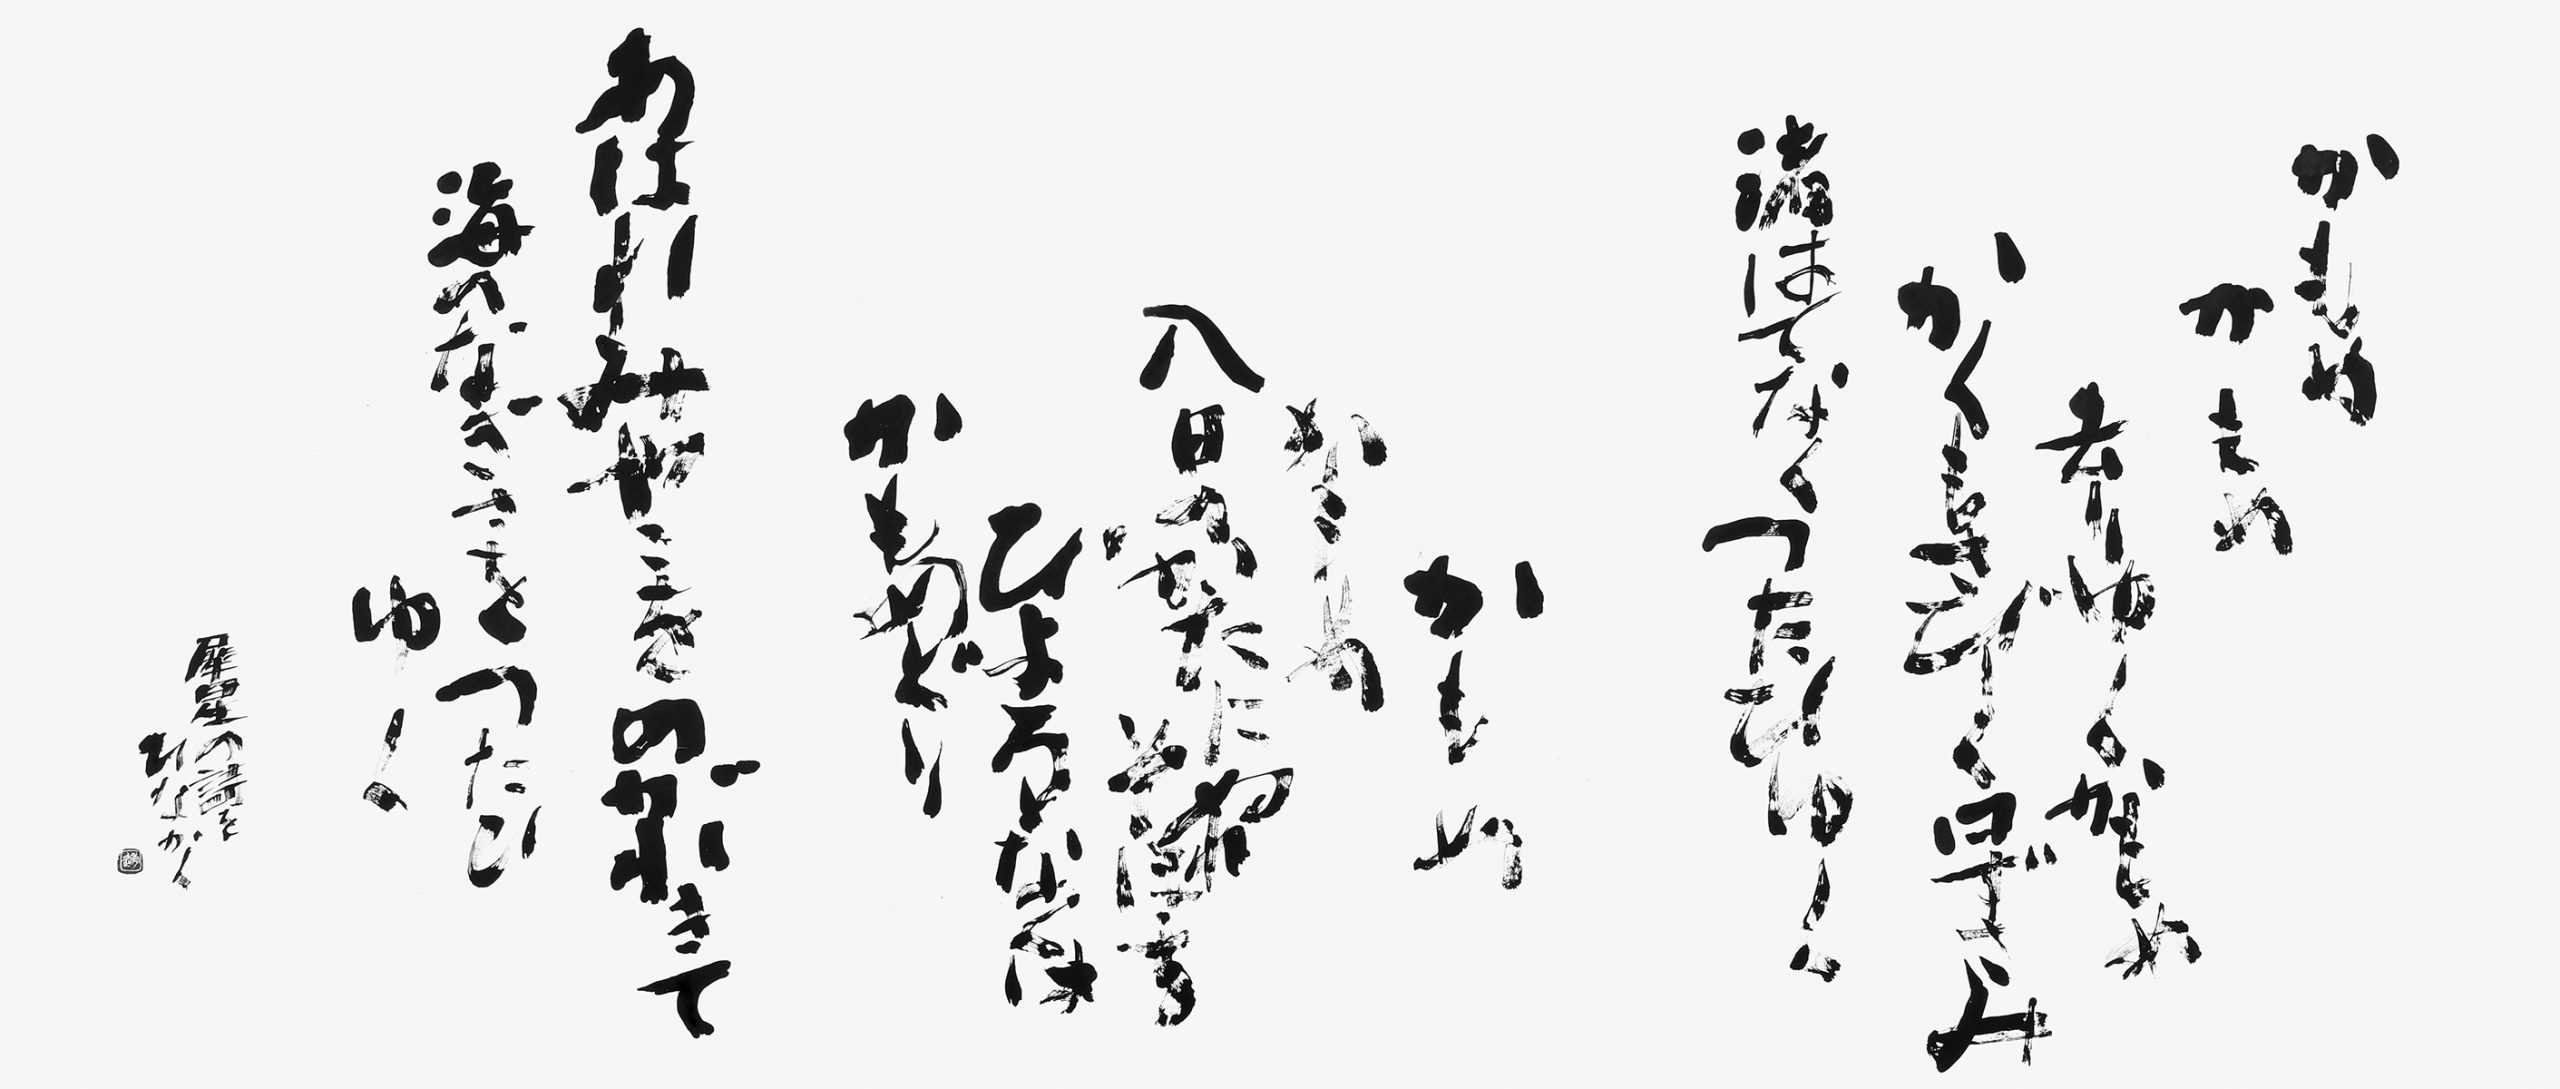 かもめ
かもめ
去りゆくかもめ
かくもさびしく口ずさみ
渚はてなくつたひゆく
かもめ
かもめ
入日のかたに
ひよろとなくは
かもめどり
あはれみやこをのがれきて
海のなぎさをつたひ
ゆく
犀星の詩を
ひなかく